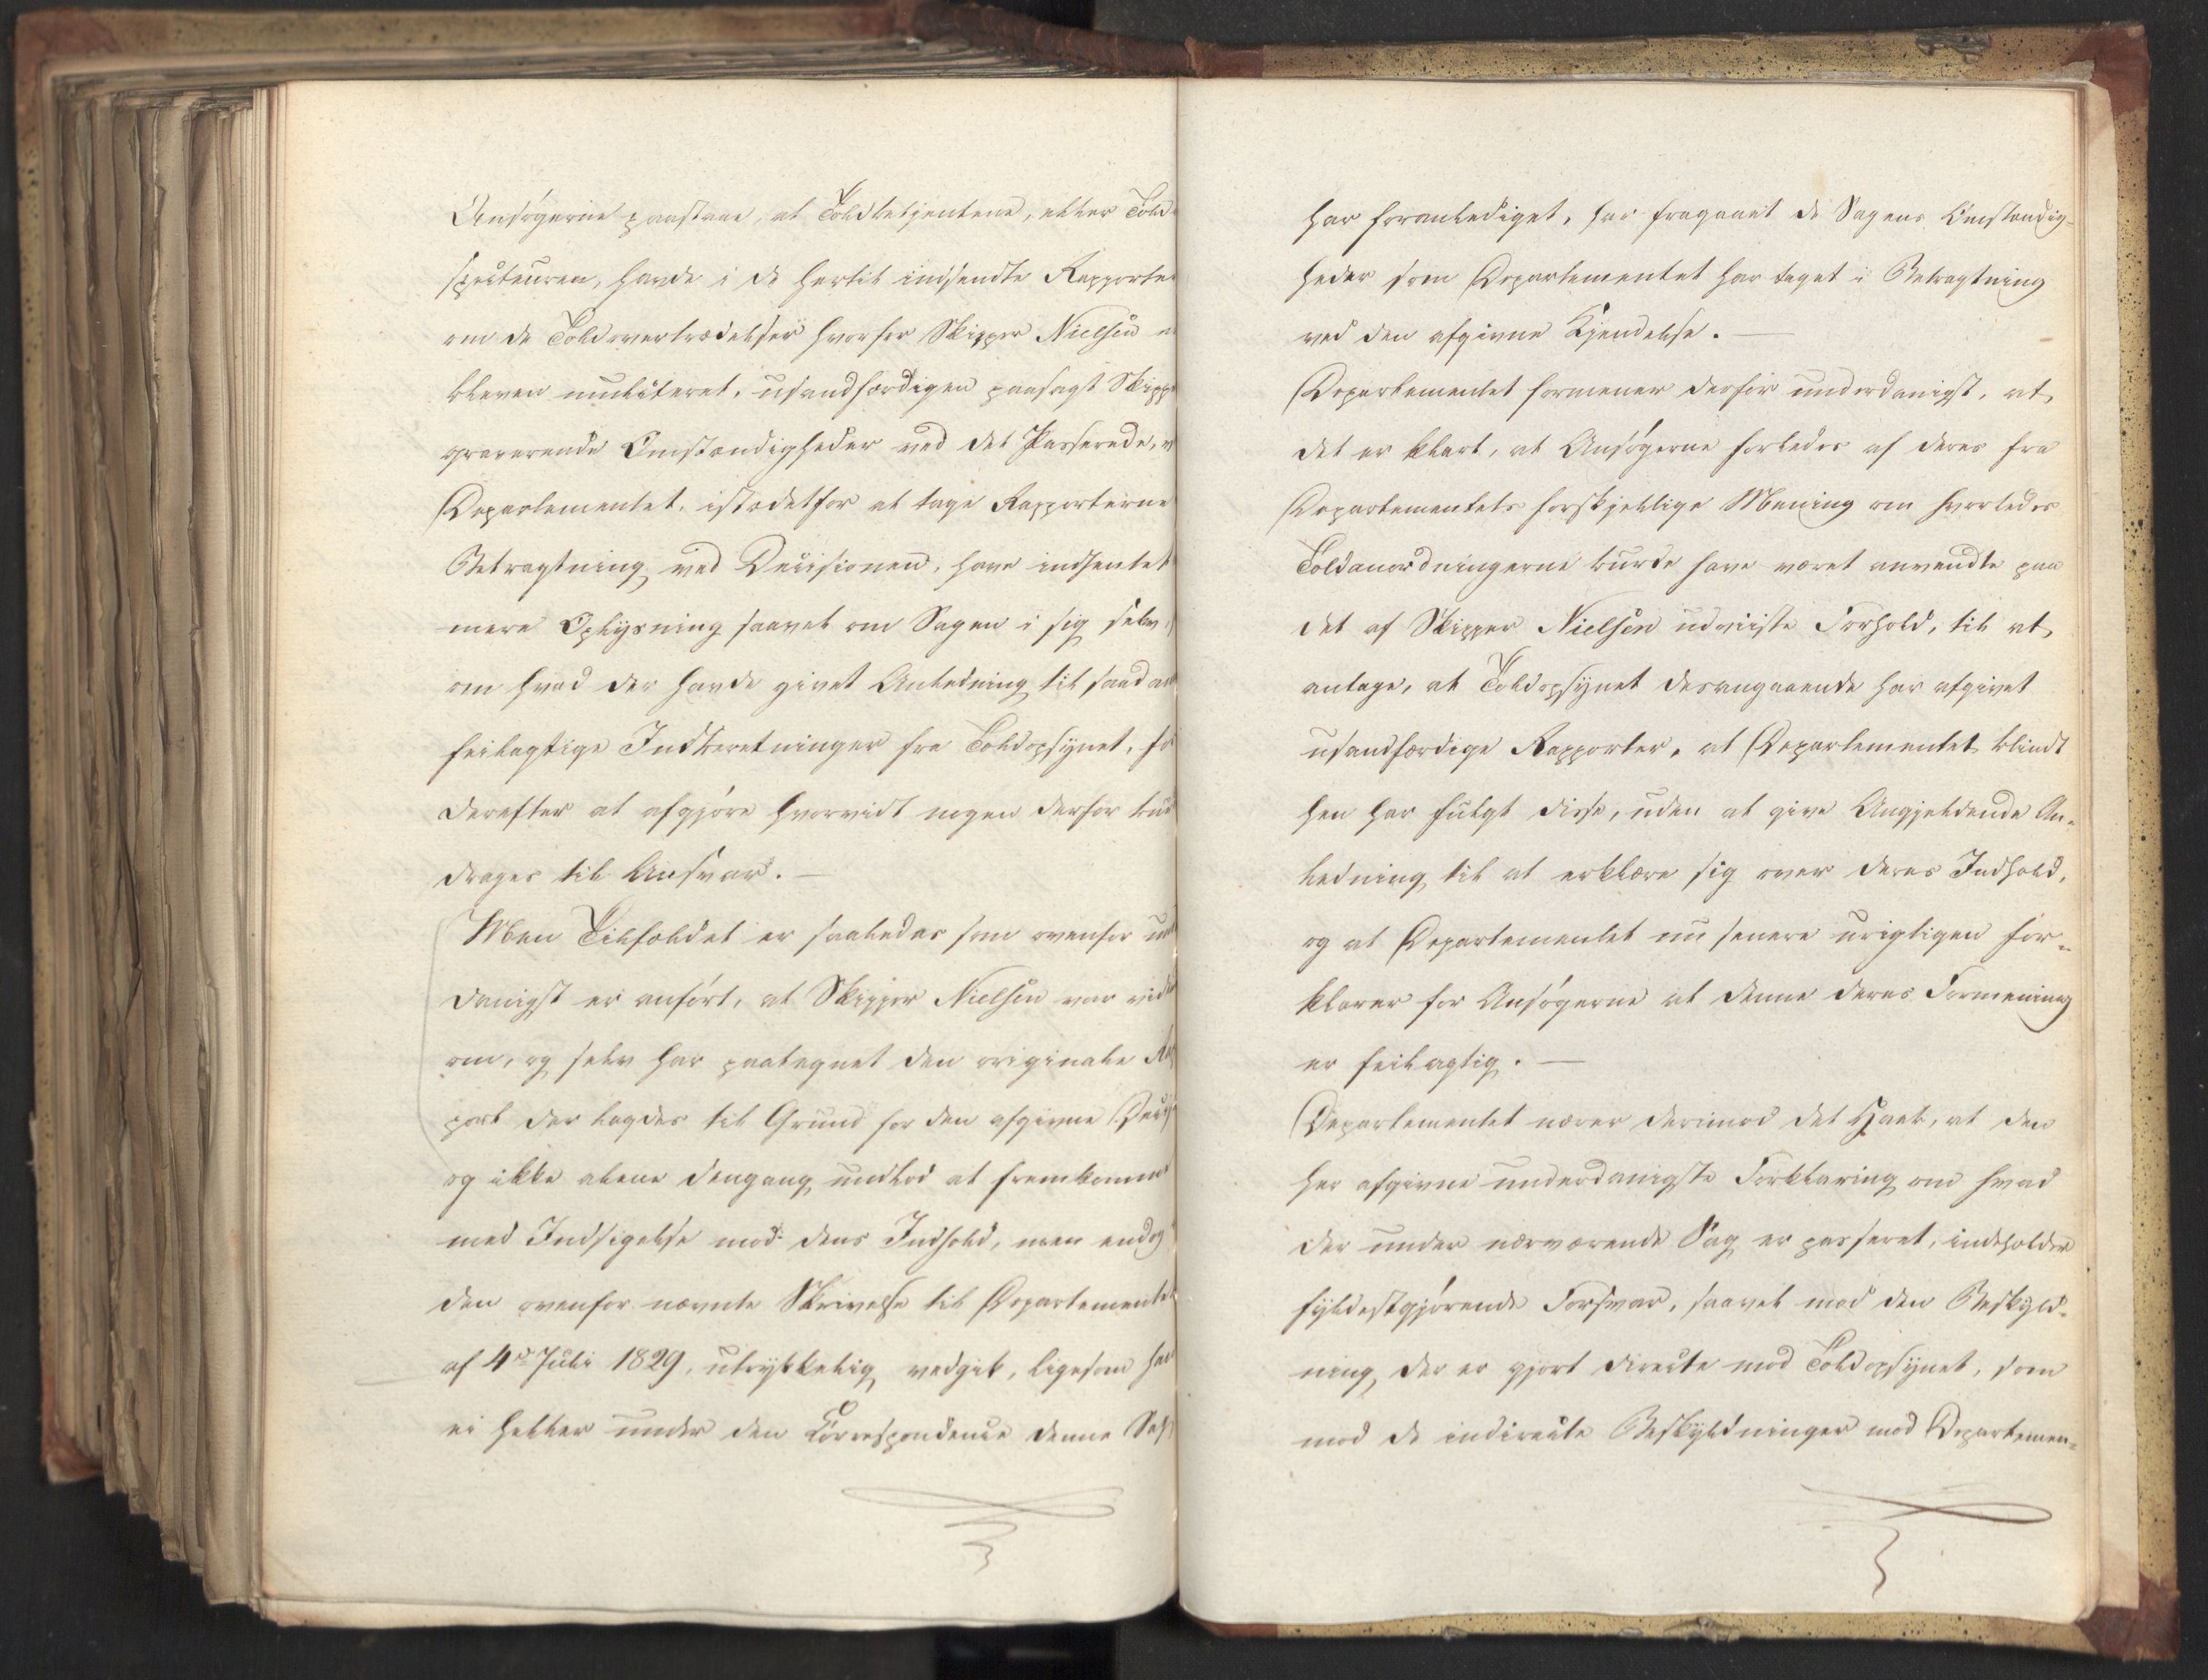 Ansøgerne paastaae, at Toldbetjentene, eller Told-
inspecteuren, havde i de hertil indsendte Rapporter
om de Toldovertrædelser hvorfor Skipper Nielsen er
bleven mulcteret, usandfærdigen paasagt Skipper
graverende Omstændigheder ved det Passerede,
Departementet, istedetfor at tage Rapporterne
Betragtning ved Decisionen, have indhentet
mere Oplysning saavel om Sagen i sig selv,
om hvad der havde givet Anledning til saadan
feilagtige Indberetninger fra Toldopsynet, for
derefter at afgjøre hvorvidt nogen derfor burde
drages til Ansvar. —
Men Tilfældet er saaledes som ovenfor un
danigst er anført, at Skipper Nielsen var vid
om, og selv har paategnet den originale Rap
port der lagdes til Grund for den afgivne Decis
og ikke alene dengang undlod at fremkomme
med Indsigelse mod dens Indhold, men endog
den ovenfor nævnte Skrivelse til Departementet
af 4de Juli 1829, udtrykkelig vedgik, ligesom han
ei heller under den Correspondence denne Sag
har foranlediget, har fragaaet de Sagens Omstændig-
heder som Departementet har taget i Betragtning
ved den afgivne Kjendelse. —
Departementet formener derfor underdanigst, at
det er klart, at Ansøgerne forledes af deres fra
Departementets forskjellige Mening om hvorledes
Toldanordningerne burde have været anvendte paa
det af Skipper Nielsen udviiste Forhold, til at
antage, at Toldopsynet desangaaende har afgivet
usandfærdige Rapporter, at Departementet blindt
hen har fulgt disse, uden at give Angjeldende An-
ledning til at erklære sig over deres Indhold,
og at Departementet nu senere urigtigen for-
klarer for Ansøgerne at denne deres Formening
er feilagtig. —
Departementet nærer derimod det Haab, at den
her afgivne underdanigste Forklaring om hvad
der under nærværende Sag er passeret, indeholder
fyldestgjørende Forsvar, saavel mod den Beskyld-
ning, der er gjort directe mod Toldopsynet, som
mod de indirecte Beskyldninger mod Departemen-